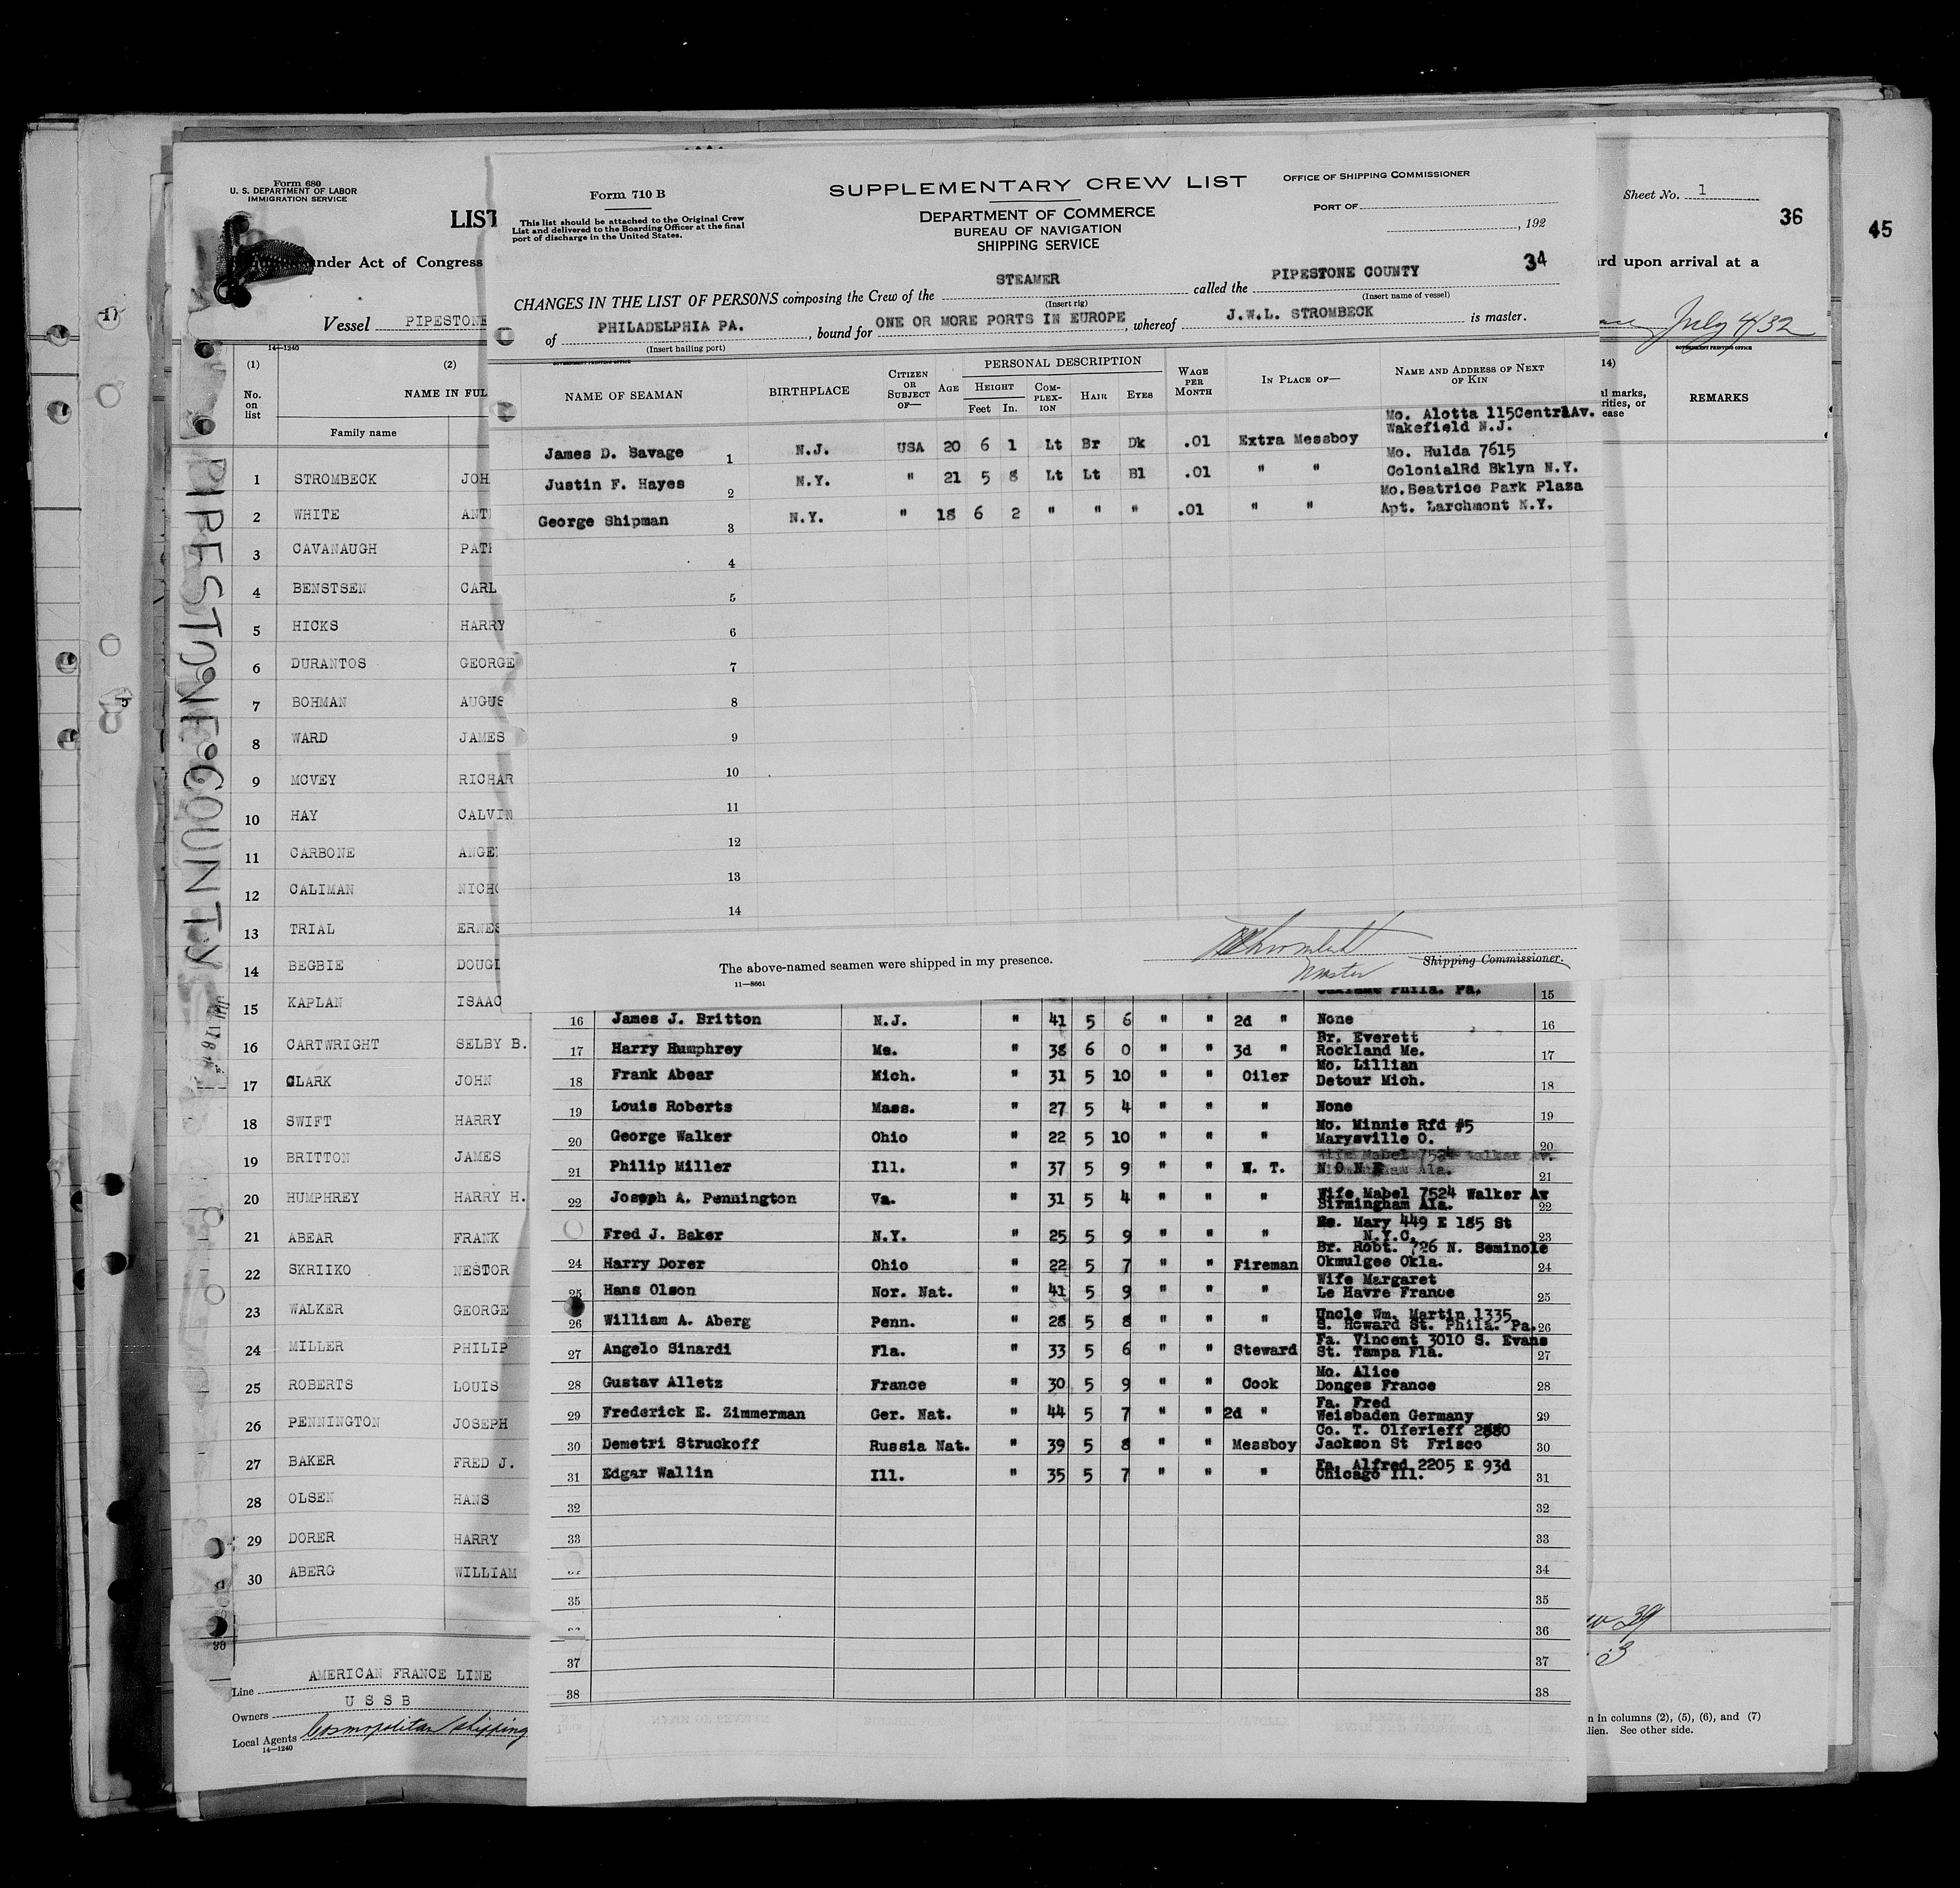 Form 680
U. S. DEPARTMENT OF LABOR
IMMIGRATION SERVICE
LIST
under Act of Congress
Vessel PIPESTONE
14—1240
(1) (2)
No. on list
NAME IN FUL
Family name
1 STROMBECK JOH
2 WHITE ANT
3 CAVANAUGH PAT
4 BENSTSEN CARL
5 HICKS HARRY
6 DURANTOS GEORGE
7 BOHMAN AUGUS
8 WARD JAMES
9 MCVEY RICHAR
10 HAY CALVIN
11 CARBONE ANGE
12 CALIMAN NICHO
13 TRIAL ERNES
14 BEGBIE DOUGL
15 KAPLAN ISAAC
16 CARTWRIGHT SELBY B.
17 CLARK JOHN
18 SWIFT HARRY
19 BRITTON JAMES
20 HUMPHREY HARRY H.
21 ABEAR FRANK
22 SKRIIKO NESTOR
23 WALKER GEORGE
24 MILLER PHILIP
25 ROBERTS LOUIS
26 PENNINGTON JOSEPH
27 BAKER FRED J.
28 OLSEN HANS
29 DORER HARRY
30 ABERG WILLIAM
30
Line AMERICAN FRANCE LINE
Owners U S S B
Local Agents Cosmopolitan Shipping
14—1240
PIPESTONE COUNTY
Form 710 B
This list should be attached to the Original Crew
List and delivered to the Boarding Officer at the final
port of discharge in the United States.
SUPPLEMENTARY CREW LIST
DEPARTMENT OF COMMERCE
BUREAU OF NAVIGATION
SHIPPING SERVICE
OFFICE OF SHIPPING COMMISSIONER
PORT OF
, 192
34
CHANGES IN THE LIST OF PERSONS composing the Crew of the STEAMER called the PIPESTONE COUNTY
(Insert rig) (Insert name of vessel)
of PHILADELPHIA PA. , bound for ONE OR MORE PORTS IN EUROPE, whereof J.W.L. STROMBECK is master.
(Insert hailing port)
GOVERNMENT PRINTING OFFICE
NAME OF SEAMAN
BIRTHPLACE
CITIZEN OR SUBJECT OF—
AGE
PERSONAL DESCRIPTION
HEIGHT
Feet In.
COMPLEXION
HAIR
EYES
WAGE PER MONTH
IN PLACE OF—
NAME AND ADDRESS OF NEXT OF KIN
James D. Savage 1 N.J. USA 20 6 1 Lt Br Dk .01 Extra Messboy Mo. Alotta 115CentralAv. Wakefield N.J.
Justin F. Hayes 2 N.Y. " 21 5 8 Lt Lt Bl .01 " " Mo. Hulda 7615 ColonialRd Bklyn N.Y.
George Shipman 3 N.Y. " 18 6 2 " " " .01 " " Mo.Beatrice Park Plaza Apt. Larchmont N.Y.
4
5
6
7
8
9
10
11
12
13
14
The above-named seamen were shipped in my presence.
Strombeck
Master
Shipping Commissioner.
11—8661
Phila. Pa. 15
16 James J. Britton N.J. " 41 5 6 " " 2d " None 16
17 Harry Humphrey Me. " 38 6 0 " " 3d " Br. Everett Rockland Me. 17
18 Frank Abear Mich. " 31 5 10 " " Oiler Mo. Lillian Detour Mich. 18
19 Louis Roberts Mass. " 27 5 4 " " " None 19
20 George Walker Ohio " 22 5 10 " " " Mo. Minnie Rfd #5 Marysville O. 20
21 Philip Miller Ill. " 37 5 9 " " W. T. N O N E 21
22 Joseph A. Pennington Va. " 31 5 4 " " " Wife Mabel 7524 Walker Av Birmingham Ala. 22
Fred J. Baker N.Y. " 25 5 9 " " " Mary 449 E 185 St N.Y.C. 23
24 Harry Dorer Ohio " 22 5 7 " " Fireman Br. Robt. 726 N. Seminole Okmulgee Okla. 24
25 Hans Olson Nor. Nat. " 41 5 9 " " " Wife Margaret Le Havre France 25
26 William A. Aberg Penn. " 28 5 8 " " " Uncle Wm. Martin 1335 S. Howard St. Phila. Pa. 26
27 Angelo Sinardi Fla. " 33 5 6 " " Steward Fa. Vincent 3010 S. Evans St. Tampa Fla. 27
28 Gustav Alletz France " 30 5 9 " " Cook Mo. Alice Donges France 28
29 Frederick E. Zimmerman Ger. Nat. " 44 5 7 " " 2d " Fa. Fred Weisbaden Germany 29
30 Demetri Struckoff Russia Nat. " 39 5 8 " " Messboy Co. T. Olferieff Jackson St Frisco 30
31 Edgar Wallin Ill. " 35 5 7 " " " Fa. Alfred 2205 E 93d Chicago Ill. 31
32 32
33 33
34
35 35
36
37 37
38 38
Sheet No. 1
36
45
rd upon arrival at a
July 4/32
GOVERNMENT PRINTING OFFICE
14)
al marks,
rities, or
ease
REMARKS
39
3
n in columns (2), (5), (6), and (7)
lien. See other side.